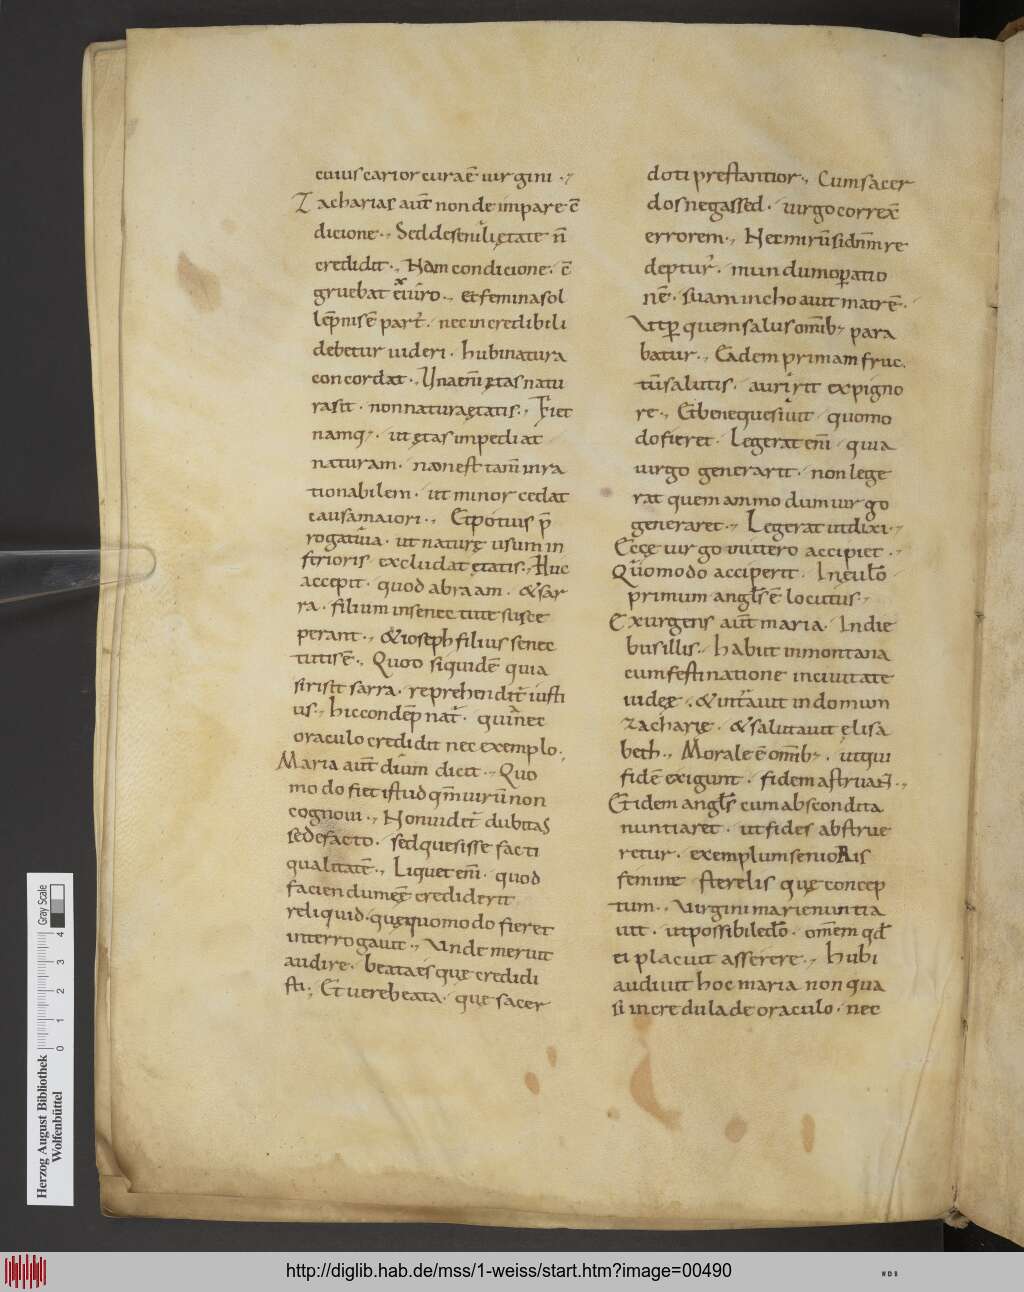 cuius carior cura ē uirgini .,
Zacharias aūt non de impare cō
dicione ., Sed de senuli ętate n̄
credidit ., Nam condicione . cō
gruebat ei uiro ., et femina sol
lēpnis ē part᷒ . nec incredibili
debetur uideri . hubi natura
concordat ., Una eni̅ ętas natu
ra sit . non natura ętatis ., Fiet
namq; . ut ętas impediat
naturam . non est tam̄ inra
tionabilem . ut minor cedat
causa maiori ., Et potius p̄
rogatiua . ut naturę usum in
ferioris excludat ętatis ., Huc
accepit . quod abraam . & sar
ra . filium in senectute susce
perant ., & ioseph filius senec
tutis ē ., Quod siquidē quia
sirisit sarra . reprehendit᷒ iusti
us ., hic condēpnat᷒ . qui nec
oraculo credidit nec exemplo .,
Maria aūt dum dicit ., Quo
modo fiet istud qm̄ uirū non
cognoui ., Non uidet᷒ dubitas
se de facto . sed quesisse facti
qualitatē ., Liquet eni̅ . quod
faciendum eē crediderit
reliquid . quę quomodo fieret
interrogauit ., Unde meruit
audire . beata es quę credidi
sti ., Et uere beata . que sacer
doti prestantior ., Cum sacer
dos negassed . uirgo correx̄
errorem ., Nec mirū si dn̄m re
deptur᷒ . mundum oꝑatio
nē . suam inchoauit matrē .
Ut ꝑ quem salus omīb; para
batur ., Eadem primam fruc
tū salutis . auririt ex pigno
re ., Et bene quesiuit quomo
do fieret . Legerat eni̅ . quia
uirgo generarit . non lege
rat quemammodum uirgo
generaret ., Legerat ut dixi .,
Ecce uirgo in utero accipiet .,
Quomodo acciperit . In euḡlo
primum angl̄s ē locutus .,
Exurgens aūt maria . In die
bus illis . habiit in montana
cum festinatione in ciuitate
iudeę . & intrauit in domum
zacharię . & salutauit elisa
beth ., Morale ē omīb; . ut qui
fidē exigunt . fidem astruan̄ .,
Et idem angl̄s cum abscondita
nuntiaret . ut fides abstrue
retur . exemplum senioRis
femine sterelis quę concep
tum ., Uirgini marie nuntia
uit . ut possibile dō . omēm qd̄
ei placuit asserere ., hubi
audiuit hoc maria non qua
si incredula de oraculo . nec
Herzog August Bibliothek
Wolfenbüttel
0 1 2 3 4
Gray Scale
http://diglib.hab.de/mss/1-weiss/start.htm?image=00490